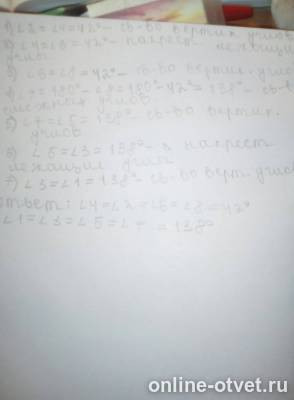 1) ∠2 = ∠4 = 42° - св-во вертик. углов
2) ∠4 = ∠6 = 42° - накрест лежащие
углы
3) ∠6 = ∠8 = 42° - св-во вертик. углов
4) ∠7 = 180° - ∠8 = 180° - 42° = 138° - св-во
смежных углов.
5) ∠7 = ∠5 = 138° св-во вертик.
углов
6) ∠5 = ∠3 = 138° - накрест
лежащие углы
7) ∠3 = ∠1 = 138° - св-во верт. углов
ответ: ∠4 = ∠2 = ∠6 = ∠8 = 42°
∠1 = ∠3 = ∠5 = ∠7 = 138°
online-otvet.ru